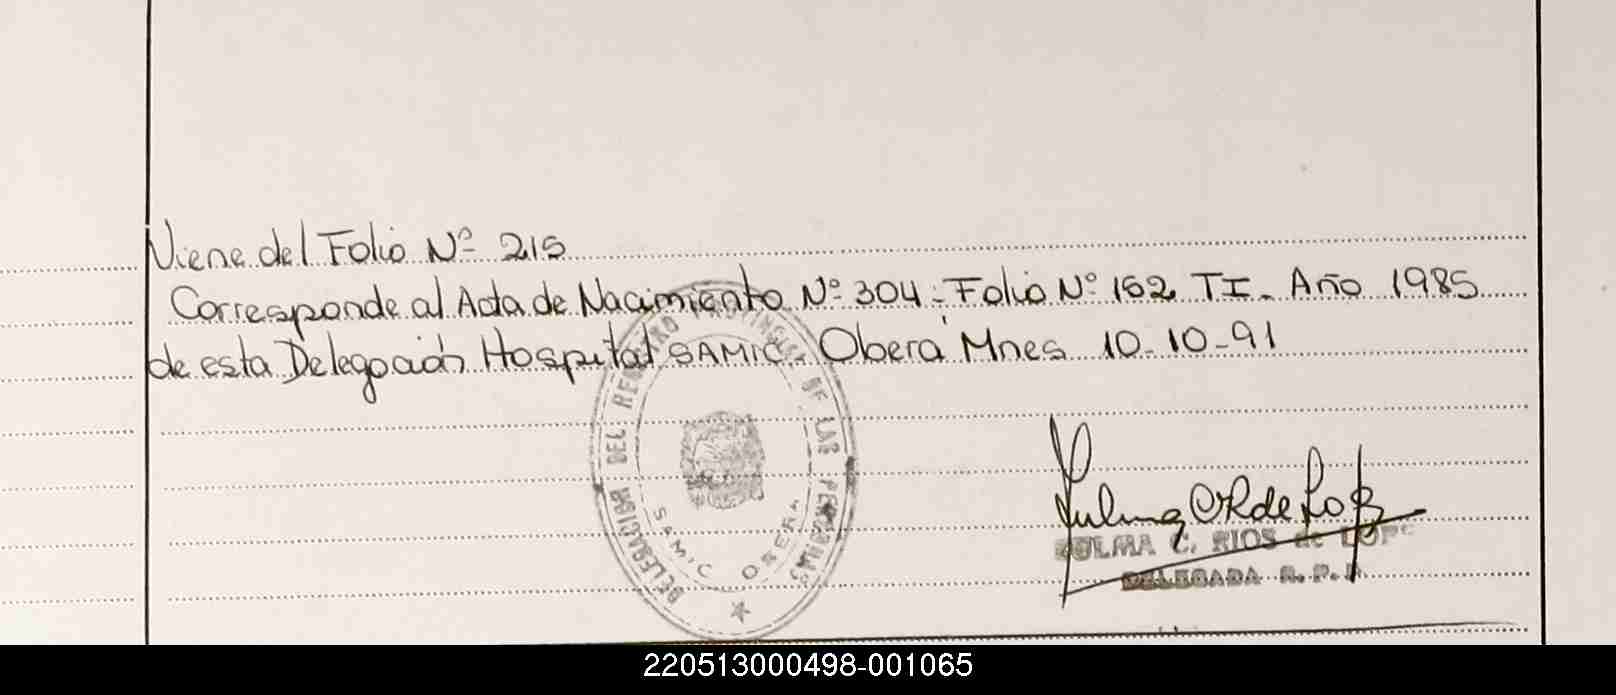 Viene del Folio Nº 215
Corresponde al Acta de Nacimiento Nº 304. Folio Nº 162 TI. Año 1985
de esta Delegación Hospital SAMIC. Oberá Mnes 10-10-91
DELEGACION DEL REGISTRO PROVINCIAL DE LAS PERSONAS
SAMIC OBERA
Zulma C R de Lopez
ZULMA C. RIOS de LOPE
DELEGADA R. P. P.
220513000498-001065